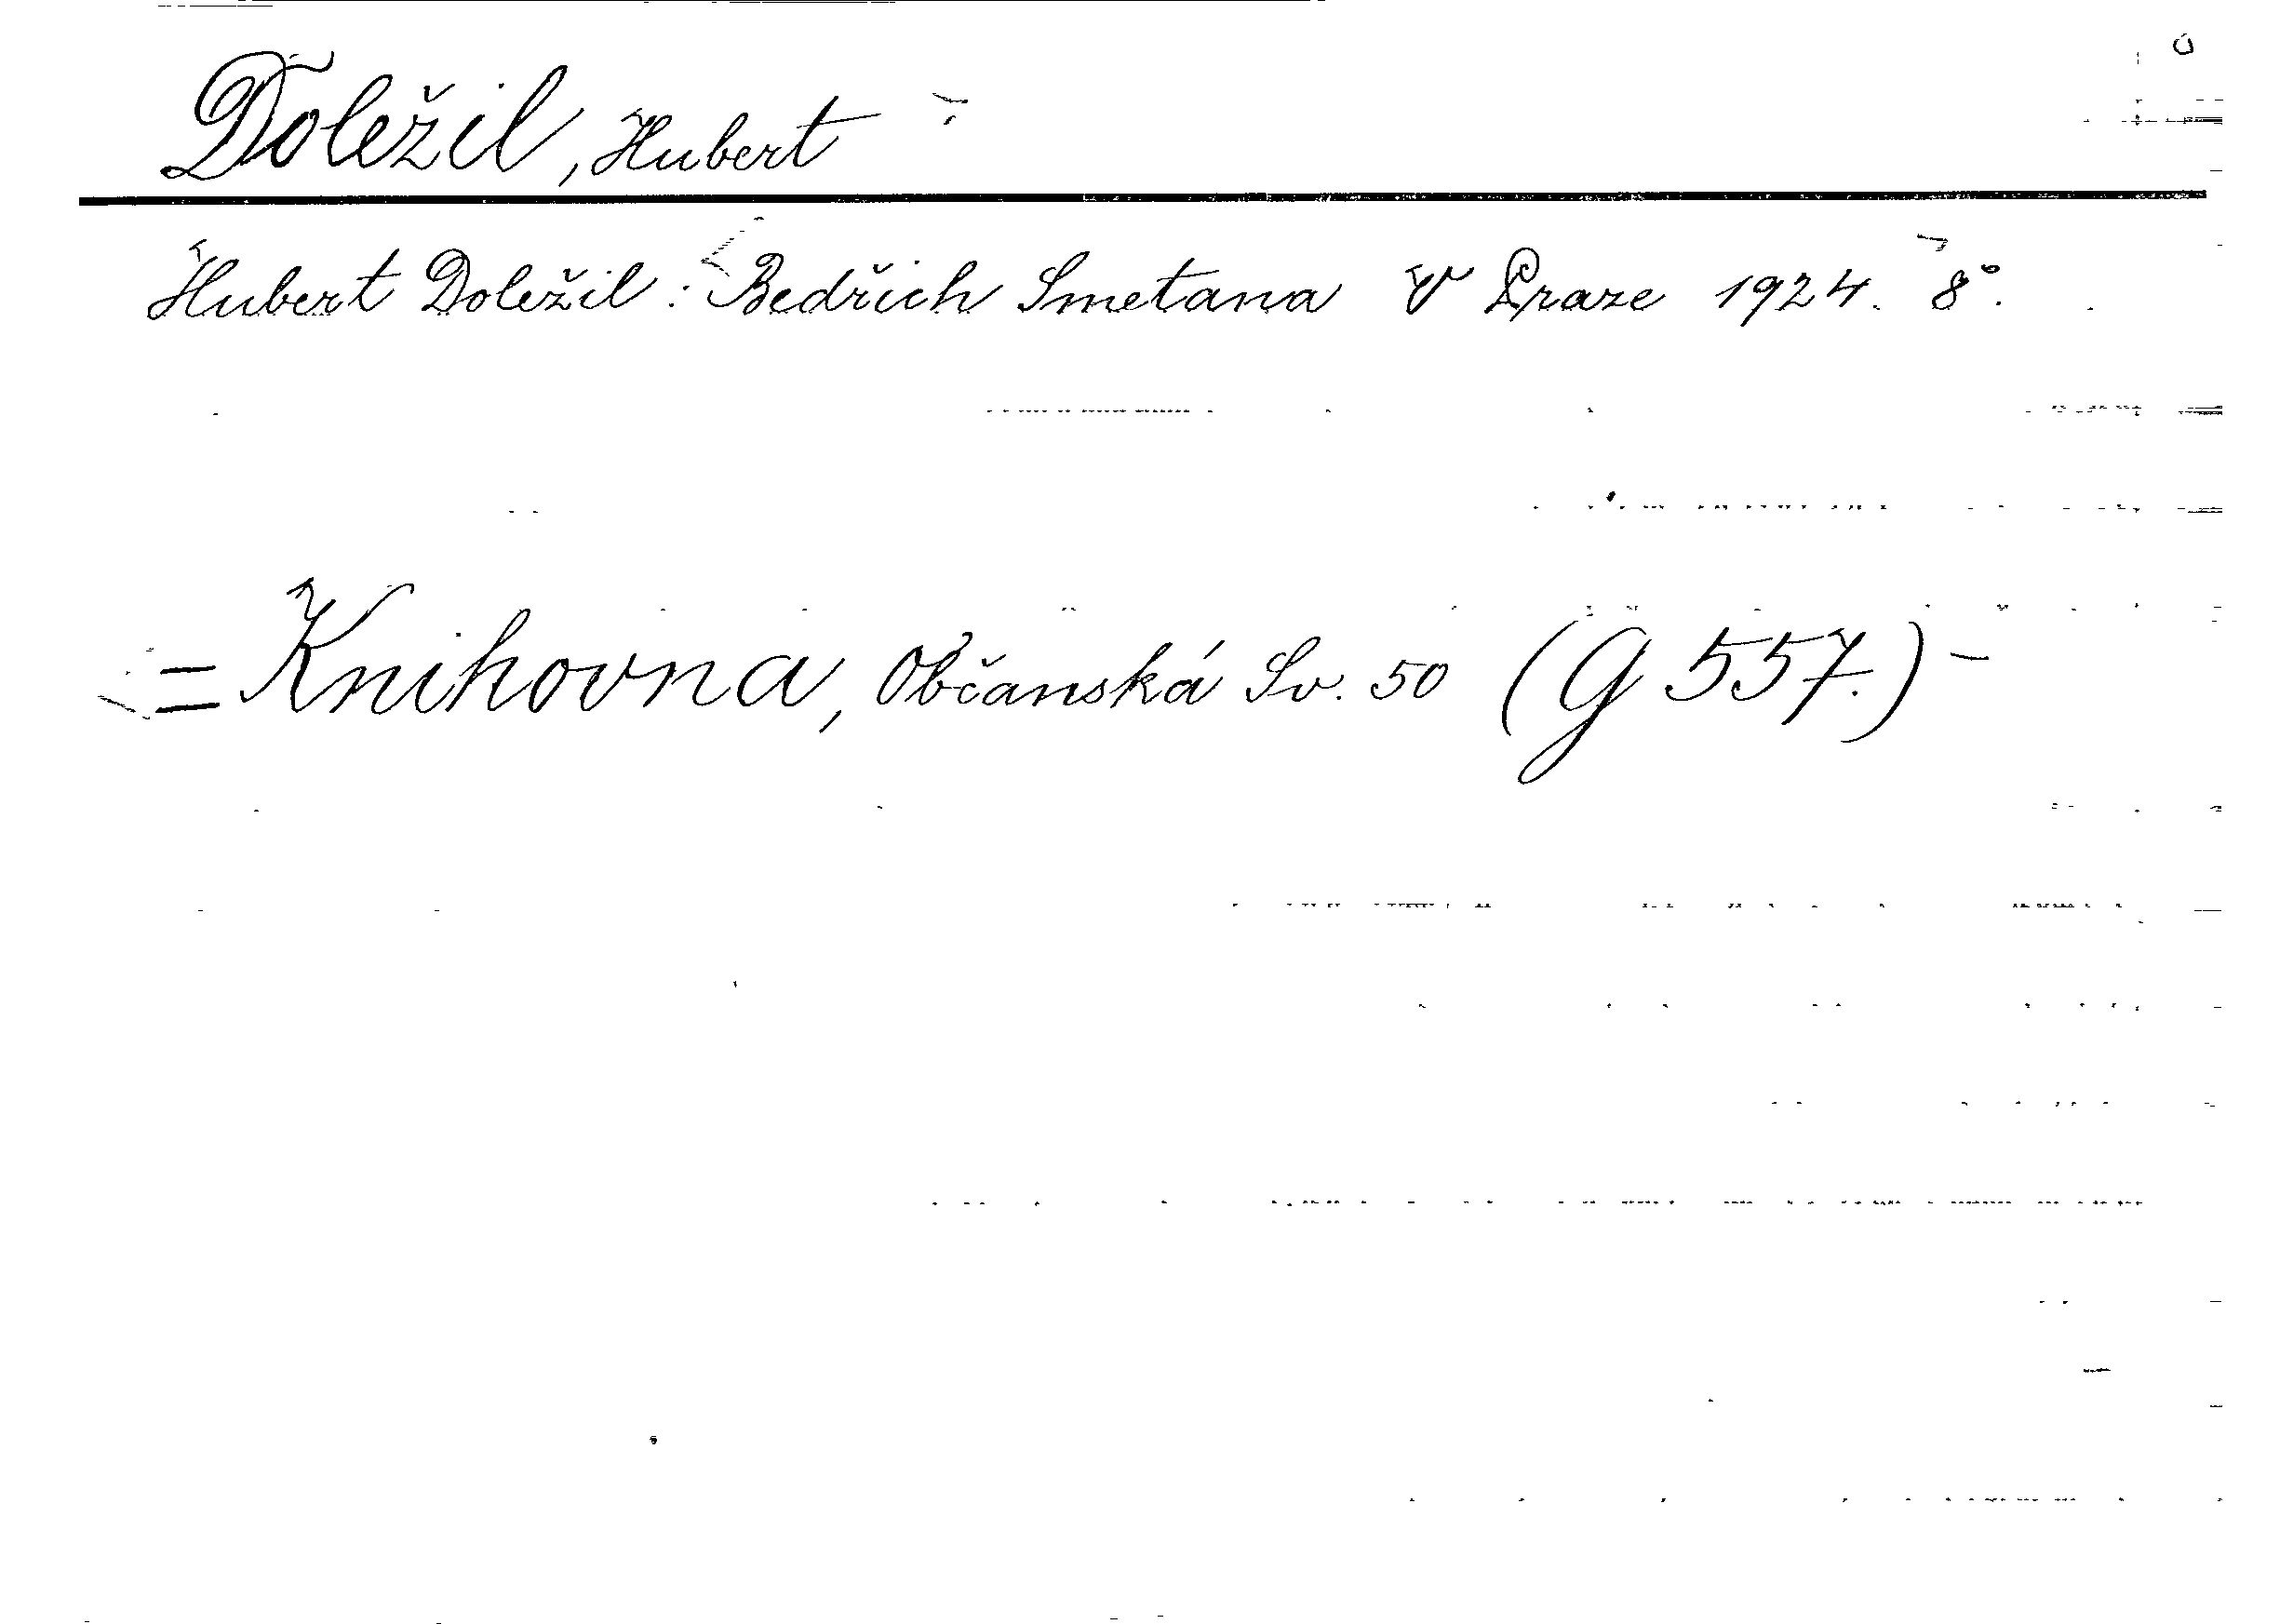 Doležil, Hubert
Hubert Doležil: Bedřich Smetana V Praze 1924. 8°.
= Knihovna, Občanská Sv. 50 (G 557.) -